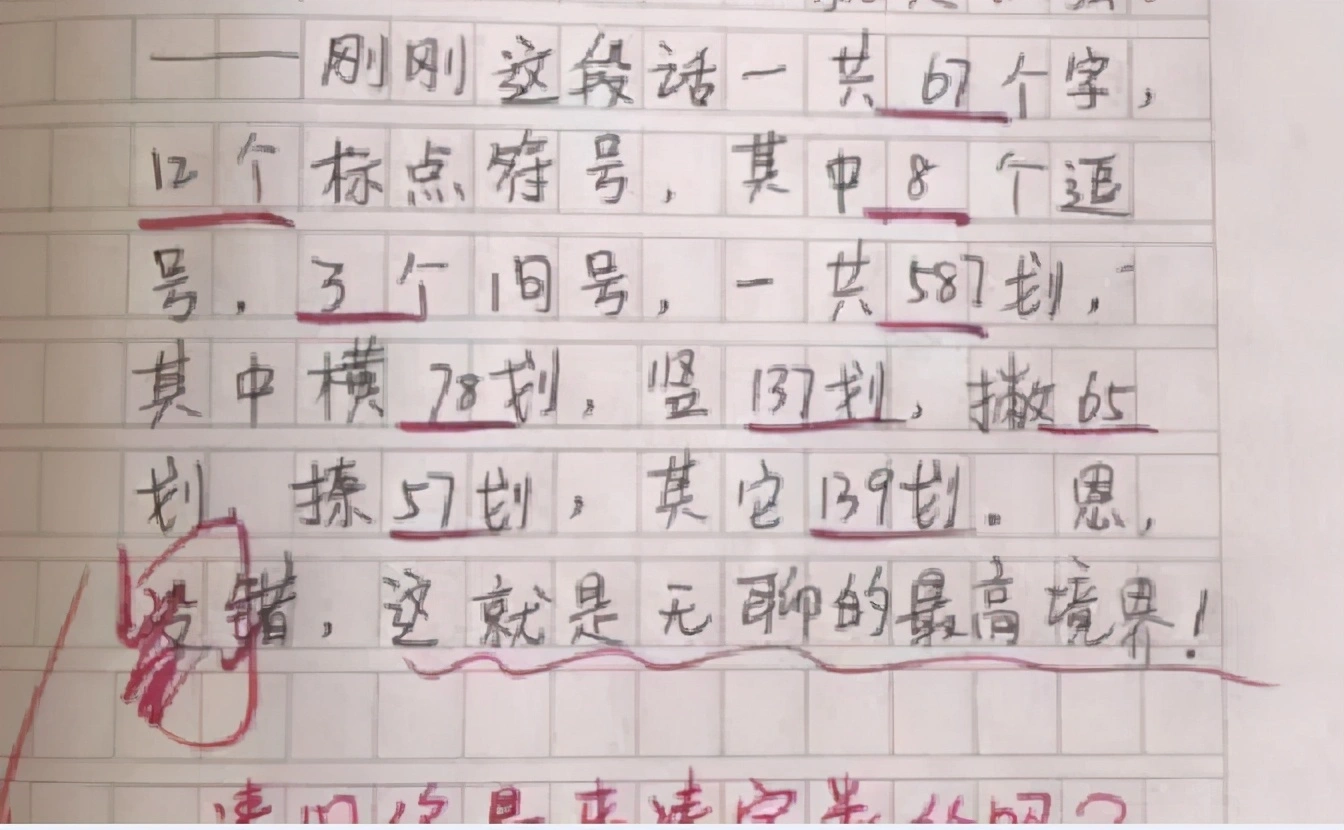 ——刚刚这段话一共67个字，
12个标点符号，其中8个逗
号，3个问号，一共587划，
其中横78划，竖137划，撇65
划 捺57划，其它139划。恩，
没错，这就是无聊的最高境界！